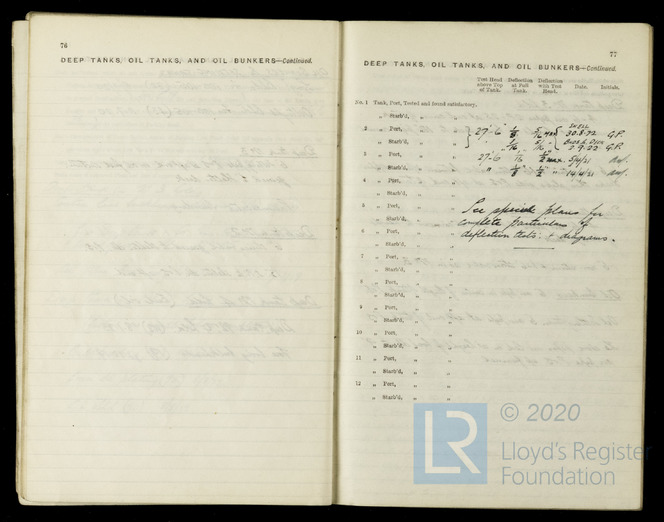 76
DEEP TANKS, OIL TANKS, AND OIL BUNKERS—Continued.
77
DEEP TANKS, OIL TANKS, AND OIL BUNKERS—Continued.
Test Head above Top of Tank. Deflection at Full Tank. Deflection with Test Head. Date. Initials.
No. 1 Tank, Port, Tested and found satisfactory.
„ Starb'd, „ „
2 „ Port, „ „ 27-6 1/8 5/16 max 30.8.22 G.P.
„ Starb'd, „ „ 5/16 2.9.22 G.P.
3 „ Port, „ „ 27-6 1/16 1/2 max
„ Starb'd, „ „ „ 1/8 1/2 „
4 „ Port, „ „
„ Starb'd, „ „
5 „ Port, „ „ See special plans for
„ Starb'd, „ „ complete particulars of
6 „ Port, „ „ deflection tests. + diagrams.
„ Starb'd, „ „
7 „ Port, „ „
„ Starb'd, „ „
8 „ Port, „ „
„ Starb'd, „ „
9 „ Port, „ „
„ Starb'd, „ „
10 „ Port, „ „
„ Starb'd, „ „
11 „ Port, „ „
„ Starb'd, „ „
12 „ Port, „ „
„ Starb'd, „ „
LR © 2020
Lloyd's Register
Foundation